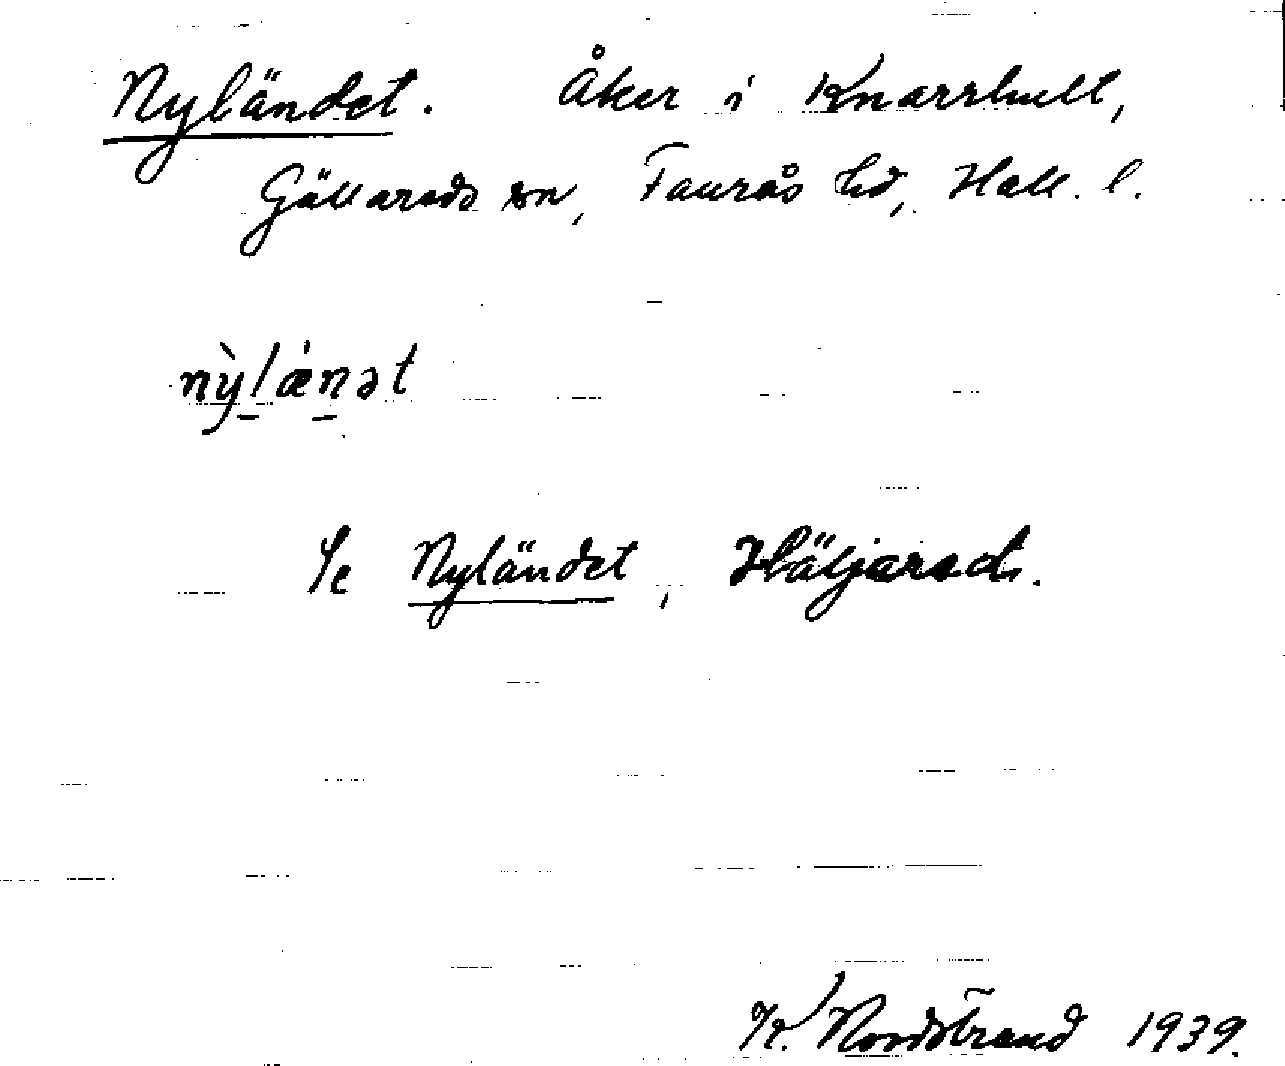 Nyländet. Åker i Knarrhult,
Gällareds sn, Faurås hd, Hall. l.
nỳlǽnət
Se Nyländet, Häljared.
K. Nordstrand 1939.